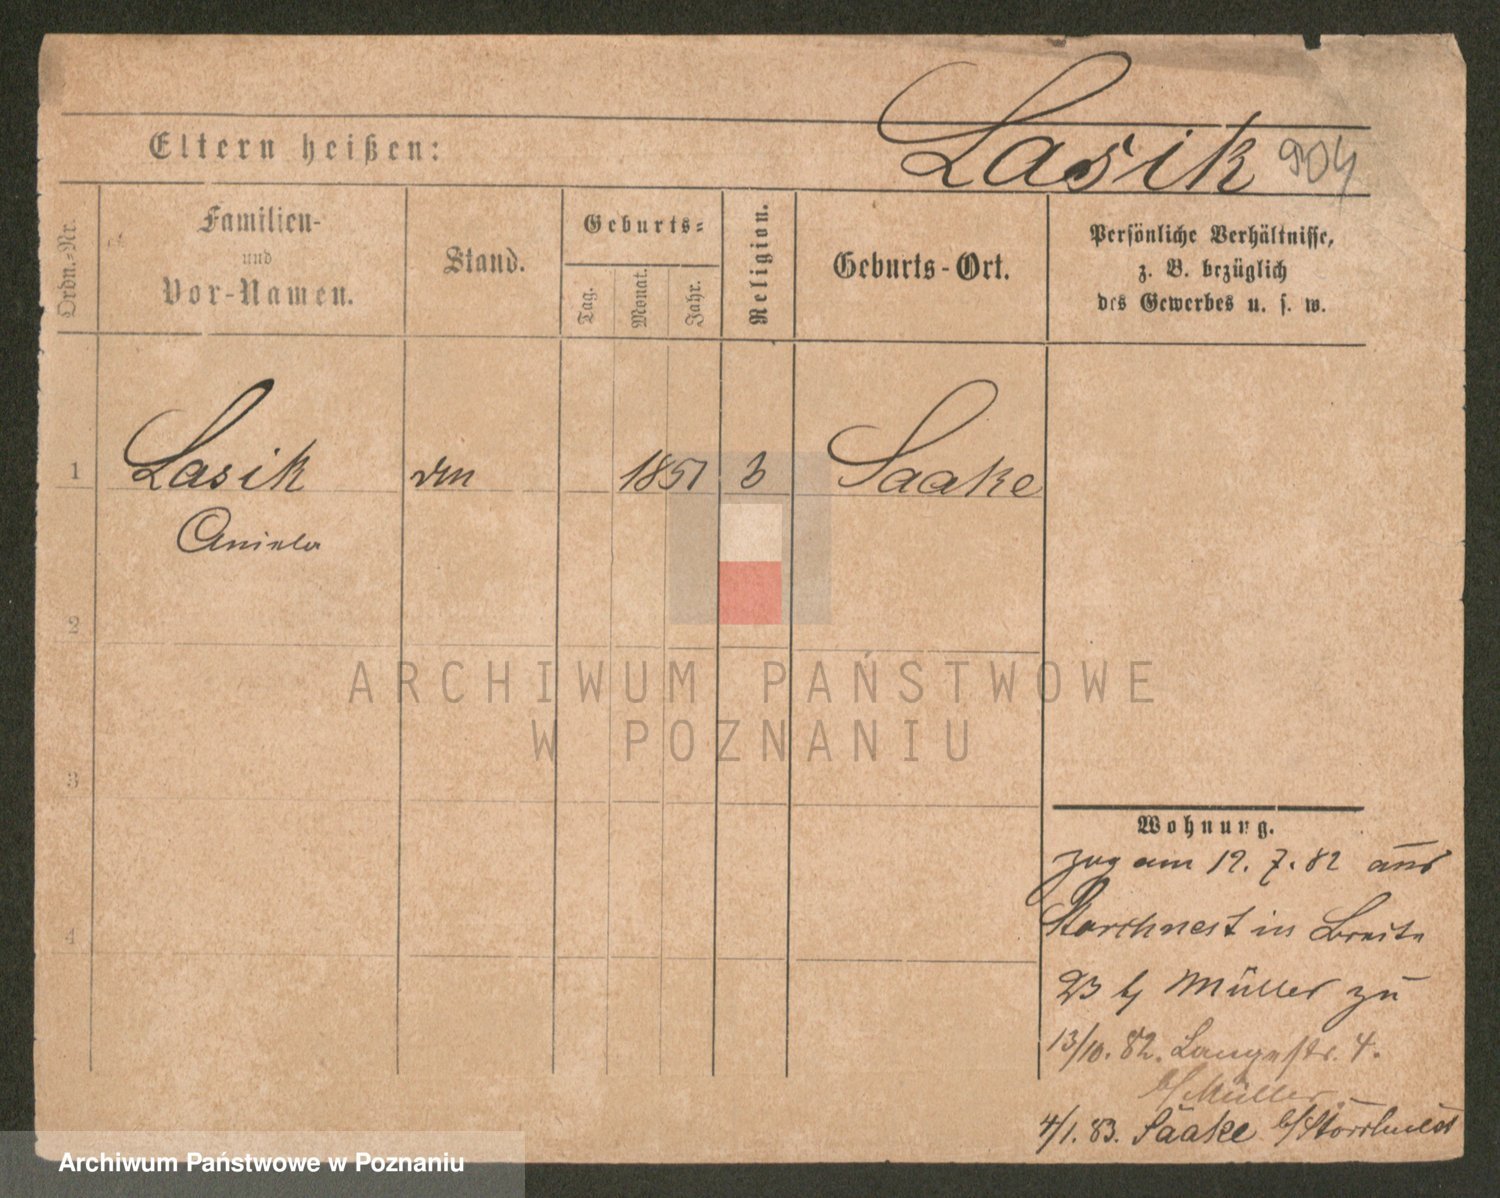 Lasik 904
Eltern heißen:
Ordn.-Nr.
Familien-
und
Vor-Namen.
Stand.
Geburts-
Tag.
Monat.
Jahr.
Religion.
Geburts-Ort.
Persönliche Verhältnisse,
z. B. bezüglich
des Gewerbes u. s. w.
1 Lasik 1851 Saake
Aniela
2
3
4
Wohnung.
zug am 12. 7. 82 aus
Storchnest in Breite
23 b/ Müller zu
13/10. 82. Langestr. 4.
b/ Müller.
4/1. 83. Saake b/ Storchnest
ARCHIWUM PAŃSTWOWE
W POZNANIU
Archiwum Państwowe w Poznaniu